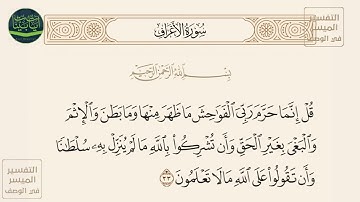 التفسير
الميسر
في الوصف
سُورَةُ الأَعۡرَافِ
بِسۡمِ ٱللَّهِ ٱلرَّحۡمَٰنِ ٱلرَّحِيمِ
قُلۡ إِنَّمَا حَرَّمَ رَبِّيَ ٱلۡفَوَٰحِشَ مَا ظَهَرَ مِنۡهَا وَمَا بَطَنَ وَٱلۡإِثۡمَ
وَٱلۡبَغۡيَ بِغَيۡرِ ٱلۡحَقِّ وَأَن تُشۡرِكُواْ بِٱللَّهِ مَا لَمۡ يُنَزِّلۡ بِهِۦ سُلۡطَٰنٗا
وَأَن تَقُولُواْ عَلَى ٱللَّهِ مَا لَا تَعۡلَمُونَ ٣٣
التفسير
الميسر
في الوصف